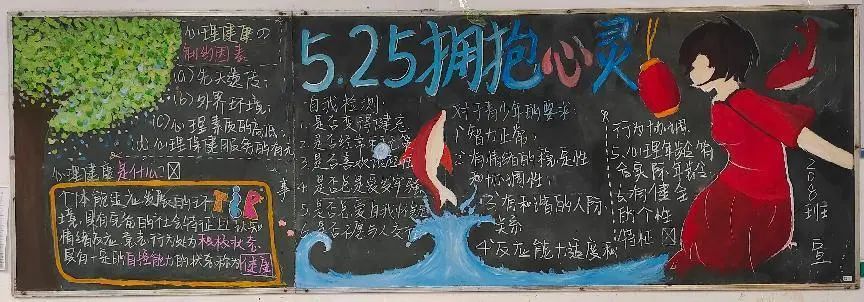 5.25拥抱心灵
心理健康の
制约因素
(a)先天遗传;
(b)外界环境;
(c)心理素质的高低;
(d)心理健康服务的有无
心理健康是什么?
TIP
个体能适应发展的环
境,具有完善的社会特征且认知
情绪反应 意志行为处于积极状态
具有一定的自控能力的状态称为健康
自我检测:
1.是否变得
2.是否经常
3.是否喜欢
4.是否总是
5.是否总爱自我
6.是否不愿与人交
对于青少年的要求:
1智力正常;
2.情绪的稳定性
和协调性;
3.有和谐的人际
关系
4反应能力适度和
行为协调
5.心理年龄符
合实际年龄
6.有健全
的个性
特征
208班 宣